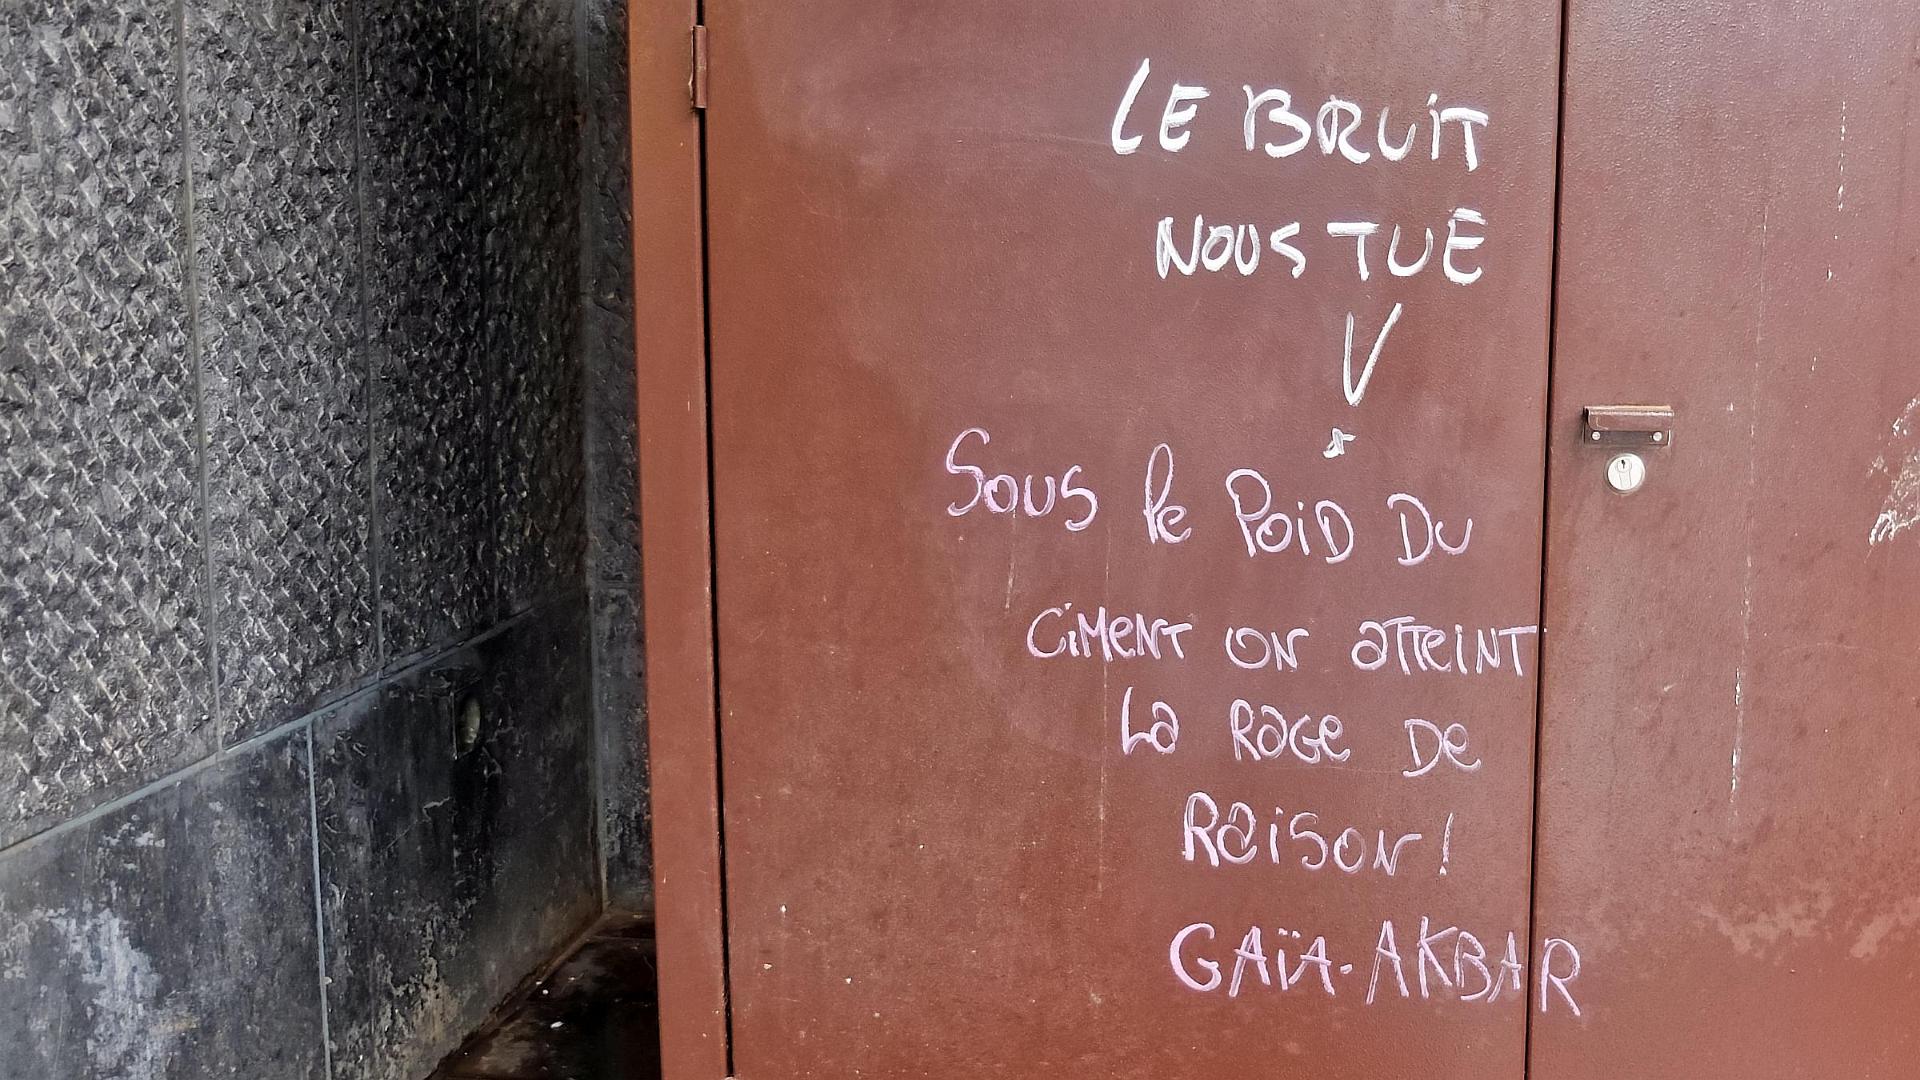 LE BRUIT
NOUS TUE
Sous le Poid Du
CiMeNT ON atteiNT
La Rage De
Raison !
GAÏA-AKBAR